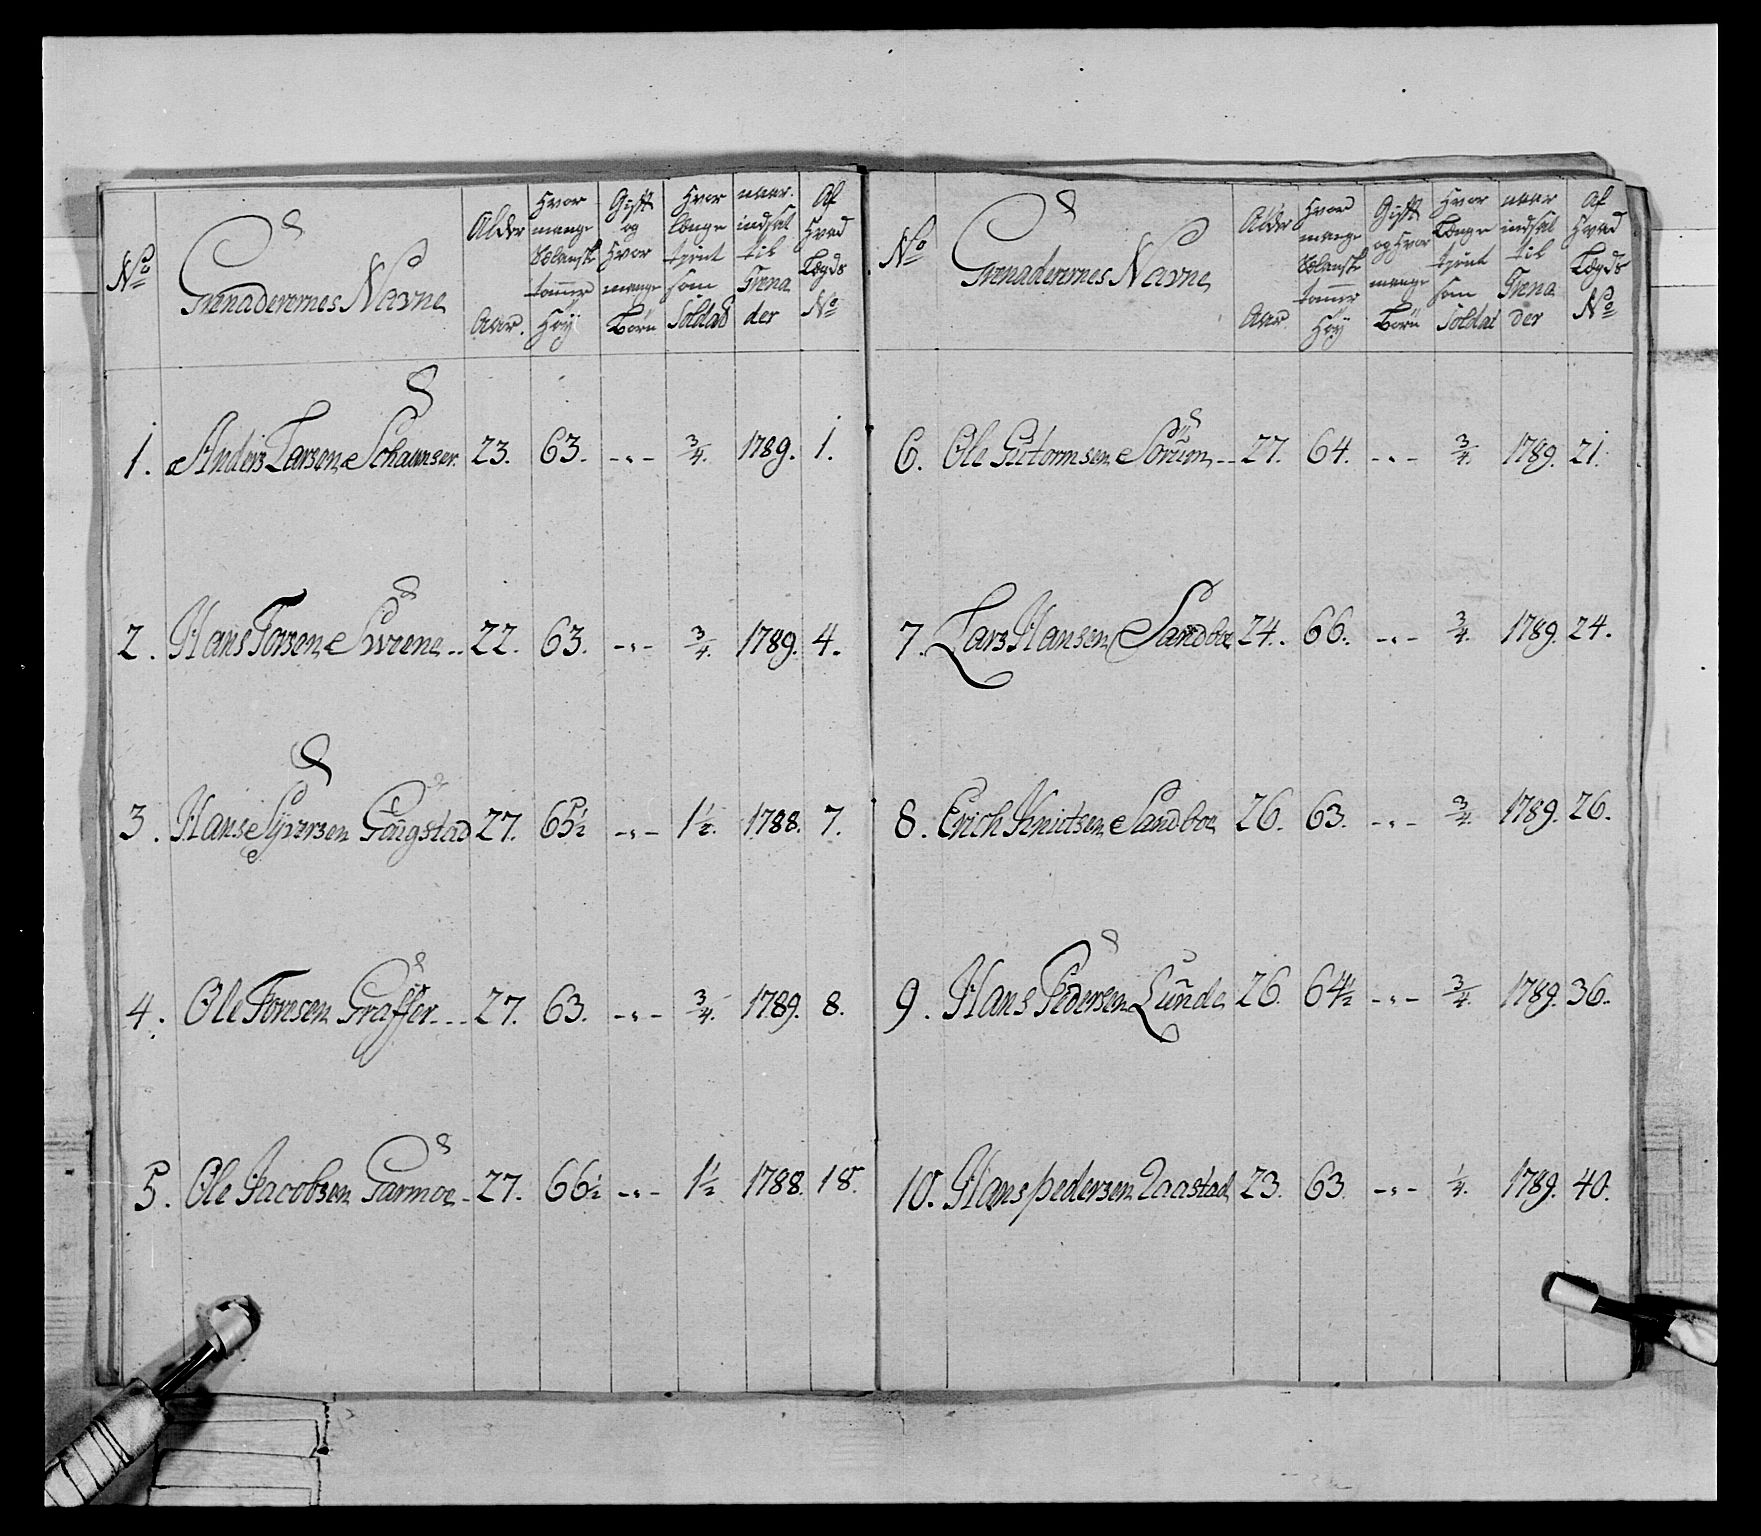 No
Grenaderernes Navne
Alder
Aar.
Hvor
mange
tomer
Høÿ
Gift
og
Hvor
mange
Børn
Hvor
Længe
tient
som
Soldat
naar
indsat
til
Grena
der
Af
Hvad
Lægds
No
1. Anders Larsen 23. 63. -"- 3/4. 1789. 1.
2. Hans Torsen 22. 63. -"- 3/4. 1789. 4.
3. Hans Syversen Gaugstad 27. 65 1/2 -"- 1 1/2. 1788. 7.
4. Ole Foresen Graffer 27. 63. -"- 3/4. 1789. 8.
5. Ole Jacobsen Garmoe 27. 66 1/2 -"- 1 1/2 1788. 18.
No
Grenaderernes Navne
Alder
Aar
Hvor
mange
tomer
Høÿ
Gift
og Hvor
mange
Børn
Hvor
Længe
tient
som
Soldat
naar
indsat
til
Grena
der
Af
Hvad
Lægds
No
6. Ole Gutormsen Sorum 27. 64. -"- 3/4. 1789. 21.
7. Lars Hansen Sandboe 24. 66. -"- 3/4. 1789. 24.
8. Erich Knutsen Sandboe 26. 63. -"- 3/4. 1789. 26.
9. Hans Pedersen Lunde 26. 64 1/2 -"- 3/4. 1789. 36.
10. Hans pedersen Laastad 23. 63. -"- 1/4. 1789. 40.